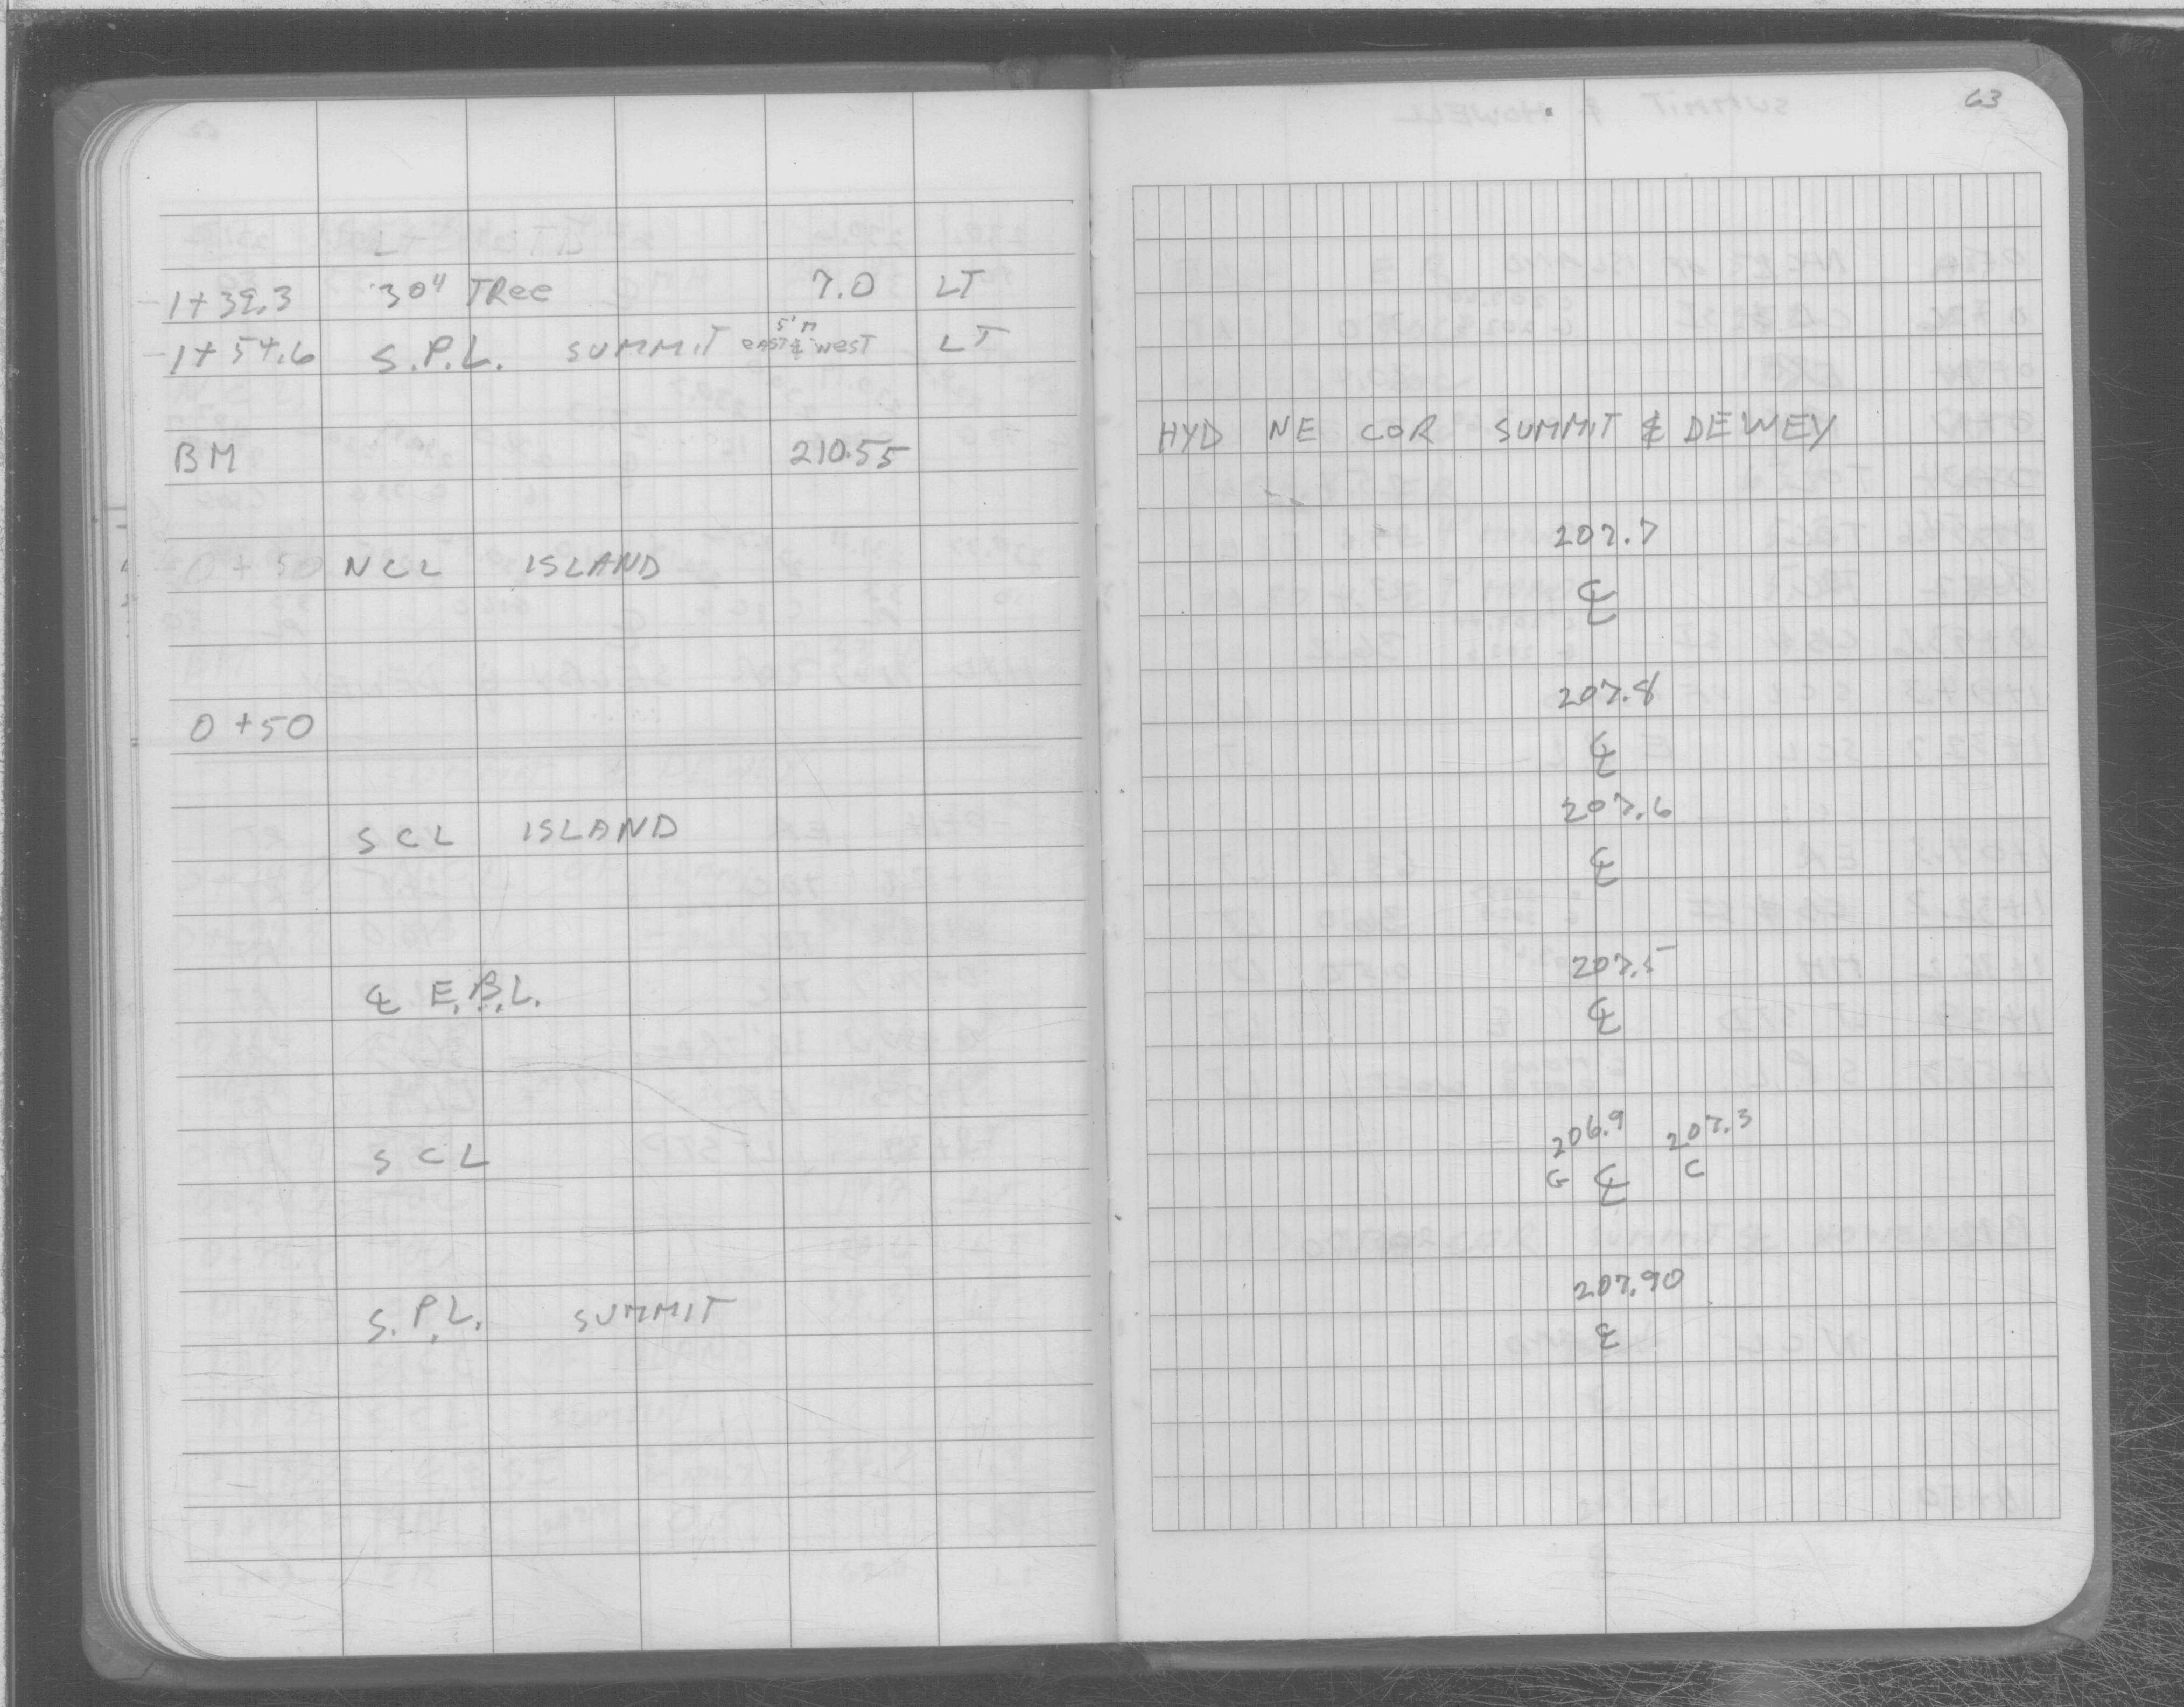 63
1+39.3 30" TRee 7.0 LT
1+54.6 S.P.L. SUMMIT EAST & WEST LT
BM 210.55 HYD NE COR SUMMIT & DEWEY
207.7
0+50 NCL ISLAND ℄
207.8
0+50 ℄
207.6
SCL ISLAND ℄
207.5
℄ E.B.L. ℄
206.9 207.3
SCL G ℄ C
207.90
S.P.L. SUMMIT ℄